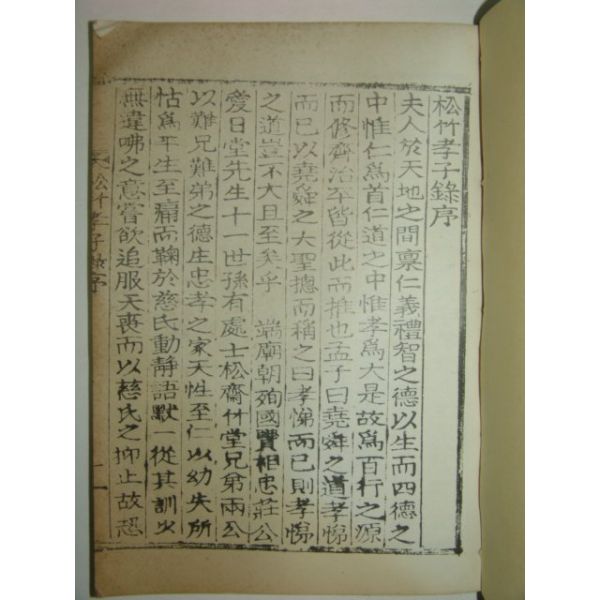 松竹孝子錄序
夫人於天地之間稟仁義禮智之德以生而四德之
中惟仁爲首仁道之中惟孝爲大是故爲百行之源
而修齊治平皆從此而推也孟子曰堯舜之道孝悌
而已以堯舜之大聖摠而稱之曰孝悌而已則孝悌
之道豈不大且至矣乎 端廟朝殉國贊相忠莊公
愛日堂先生十一世孫有處士松齋竹堂兄弟兩公
以難兄難弟之德庄忠孝之家天性至仁以幼失所
怙爲平生至痛而鞠於慈氏動靜語默一從其訓少
無違咈之意嘗欲追服天喪而以慈氏之抑止故恐
松竹孝子錄序 一